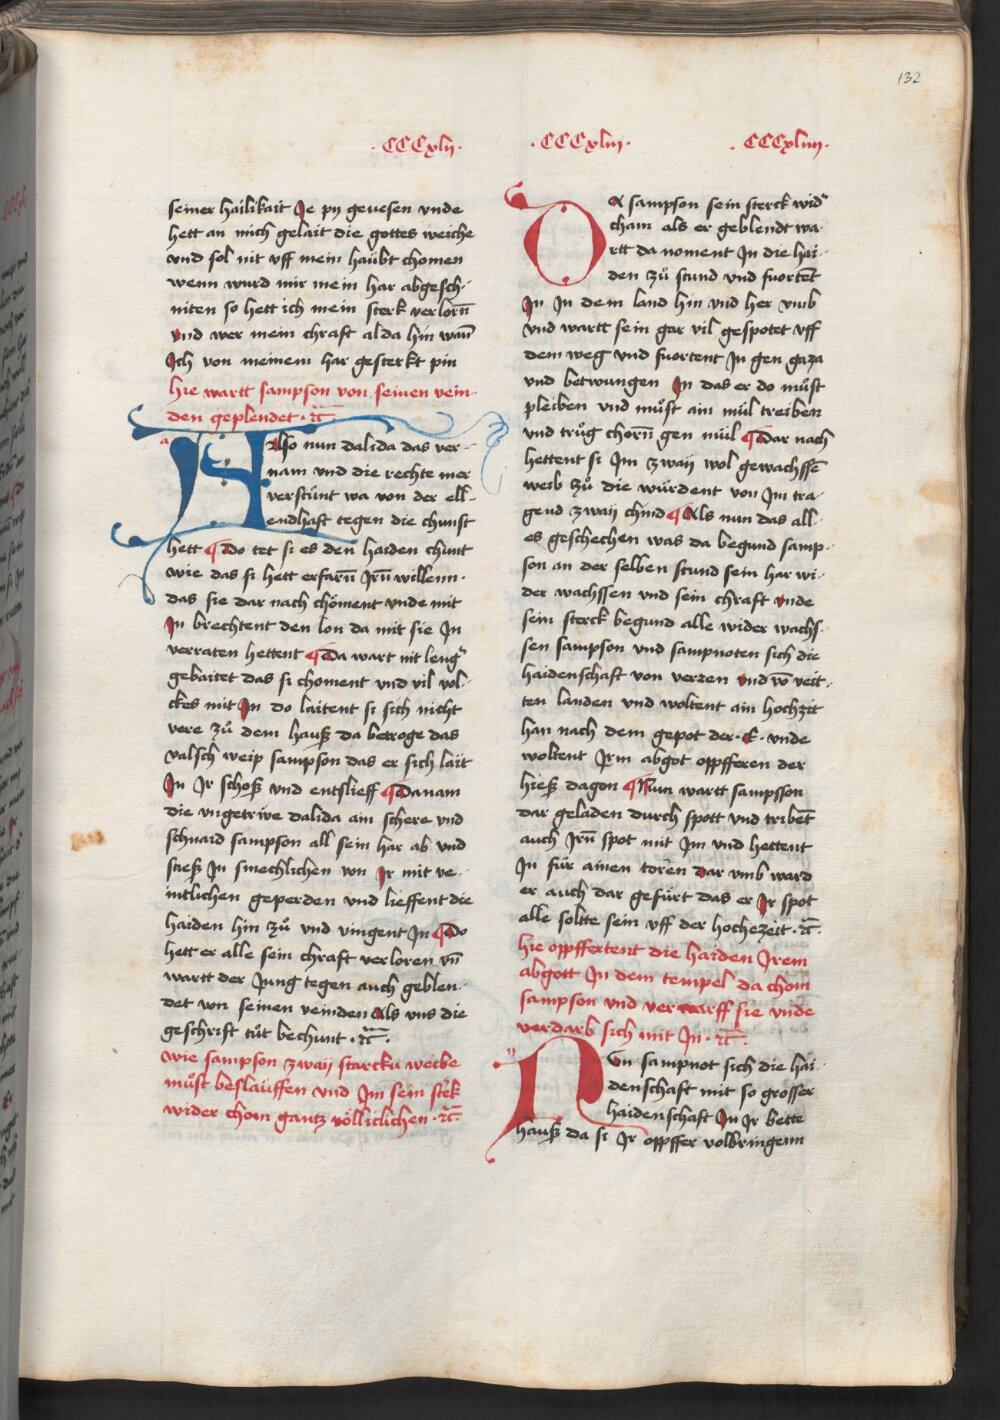 132
· CCCxlii ·
· CCCxliii ·
· CCCxliiii ·
seiner hailikait Je pÿ gewesen vnde
hett an mich gelait die gottes weiche
vnd sol nit vff mein haübt chomen
wenn wurd mir mein har abgesch-
niten so hett ich mein sterk verlorn̄
vnd wer mein chraft alda hin wan̄
Ich von meinem har gesterkt pin
hie wartt sampson von seinen vein-
den geplendet · ꝛc̄
Also nun dalida das ver-
nam vnd die rechte mer
verstünt wa von der ell-
endhaft tegen die chunst
hett ¶ Do tet si es den haiden chunt
wie das si hett erfarn̄ Jrn̄ willenn ·
das sie dar nach chöment vnde mit
In brechtent den lon da mit sie In
verraten hettent ¶ Da wart nit leng̓
gebaitet das si choment vnd vil vol-
ckes mit In do laitent si sich nicht
vere zů dem hauß da betroge das
valsch weip sampson das er sich lait
In Jr schoß vnd entslieff ¶ Da nam
die vngetriwe dalida ain schere vnd
schnaid sampson all sein har ab vnd
stieß In smechlichen von Ir mit ve-
intlichen geperden vnd lieffent die
haiden hin zů vnd vingent In ¶ Do
hett er alle sein chraft verloren vn̄
wartt der Jung tegen auch geblen-
det von seinen veinden Als vns die
geschrift tůt bechunt · ꝛc̄ ·
wie sampson zwaÿ starcku weibe
můst beslauffen vnd Im sein sterk
wider chom gantz völliclichen · ꝛc̄ ·
DA sampson sein sterck wid̓
cham als er geblendt wa-
rtt da noment In die hai-
den zů stund vnd fuortēt
In In dem land hin vnd her vmb
vnd wartt sein gar vil gespotet vff
dem weg vnd fuortent In gen gaza
vnd betwungen In das er do můst
pleiben vnd můst ain mül treiben
vnd trůg chorn̄ gen mül ¶ Dar nach
hettent si Im zwaÿ wol gewachssē
weib zů die würdent von Im tra-
gend zwaÿ chind ¶ Als nun das all-
es geschechen was da begund samp-
son an der selben stund sein har wi-
der wachssen vnd sein chraft vnde
sein sterck begund alle wider wachs-
sen sampson vnd sampnoten sich die
haidenschaft von verren vnd vō veit-
ten landen vnd woltent ain hochzit
han nach dem gepot der · E · vnde
woltent Irm abgot oppfferen der
hieß dagon ¶ Nun wartt sampsson
dar geladen durch spott vnd tribēt
auch Jrn̄ spot mit Im vnd hettent
In für ainen toren dar vmb ward
er auch dar gefürt das er Ir spot
alle soltte sein vff der hochezeit · ꝛc̄ ·
hie oppffertent die haiden Jrem
abgott In dem tempel da chom
sampson vnd verwarff sie vnde
verdarb sich mit In · ꝛc̄ ·
Nvn sampnot sich die hai-
denschaft mit so grosser
haidenschaft In Jr bette
hauß da si Jr oppffer volbringenn